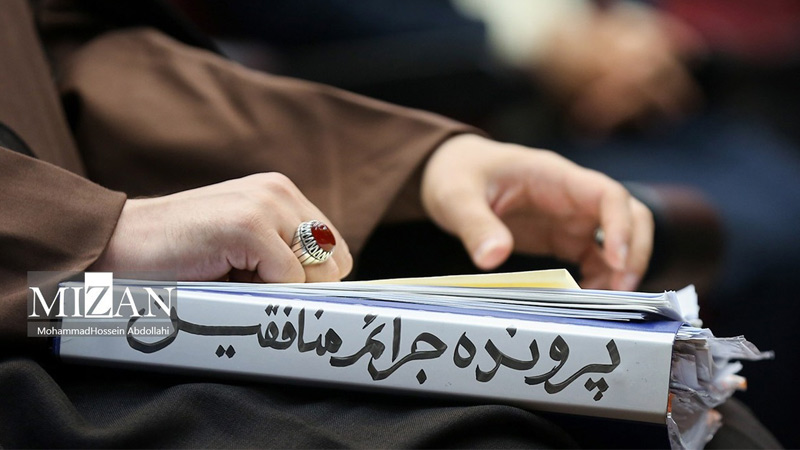 MIZAN
MohammadHossein Abdollahi
پرونده جرائم منافقین